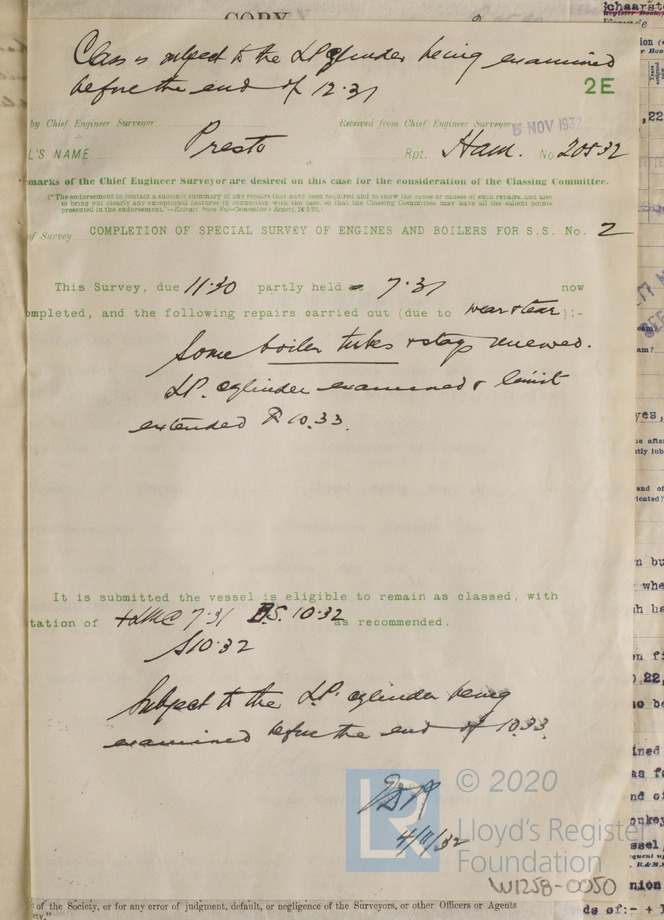 COPY
Class is subject to the LP cylinder being examined
before the end of 12.31
2E
by Chief Engineer Surveyor
Received from Chief Engineer Surveyor
5 NOV 1932
L'S NAME Presto Rpt. Ham. No 20532
marks of the Chief Engineer Surveyor are desired on this case for the consideration of the Classing Committee.
("The endorsement to contain a succinct summary of any repairs that have been required and to show the cause or causes of such repairs, and also
to bring out clearly any exceptional features in connection with the case, so that the Classing Committee may have all the salient points
presented in the endorsement."—Extract from Sub-Committee's Report,
of Survey COMPLETION OF SPECIAL SURVEY OF ENGINES AND BOILERS FOR S.S. No. 2
This Survey, due 11.30 partly held 7.31 now
ompleted, and the following repairs carried out (due to wear & tear):-
Some boiler tubes & stay renewed.
LP. cylinder examined & limit
extended 10.33.
It is submitted the vessel is eligible to remain as classed, with
tation of +LMC 7.31 B.S. 10.32 as recommended.
S 10.32
Subject to the L.P. cylinder being
examined before the end of 10.33.
4/11/32
© 2020
LR
Lloyd's Register
Foundation
W1258-0050
of the Society, or for any error of judgment, default, or negligence of the Surveyors, or other Officers or Agents